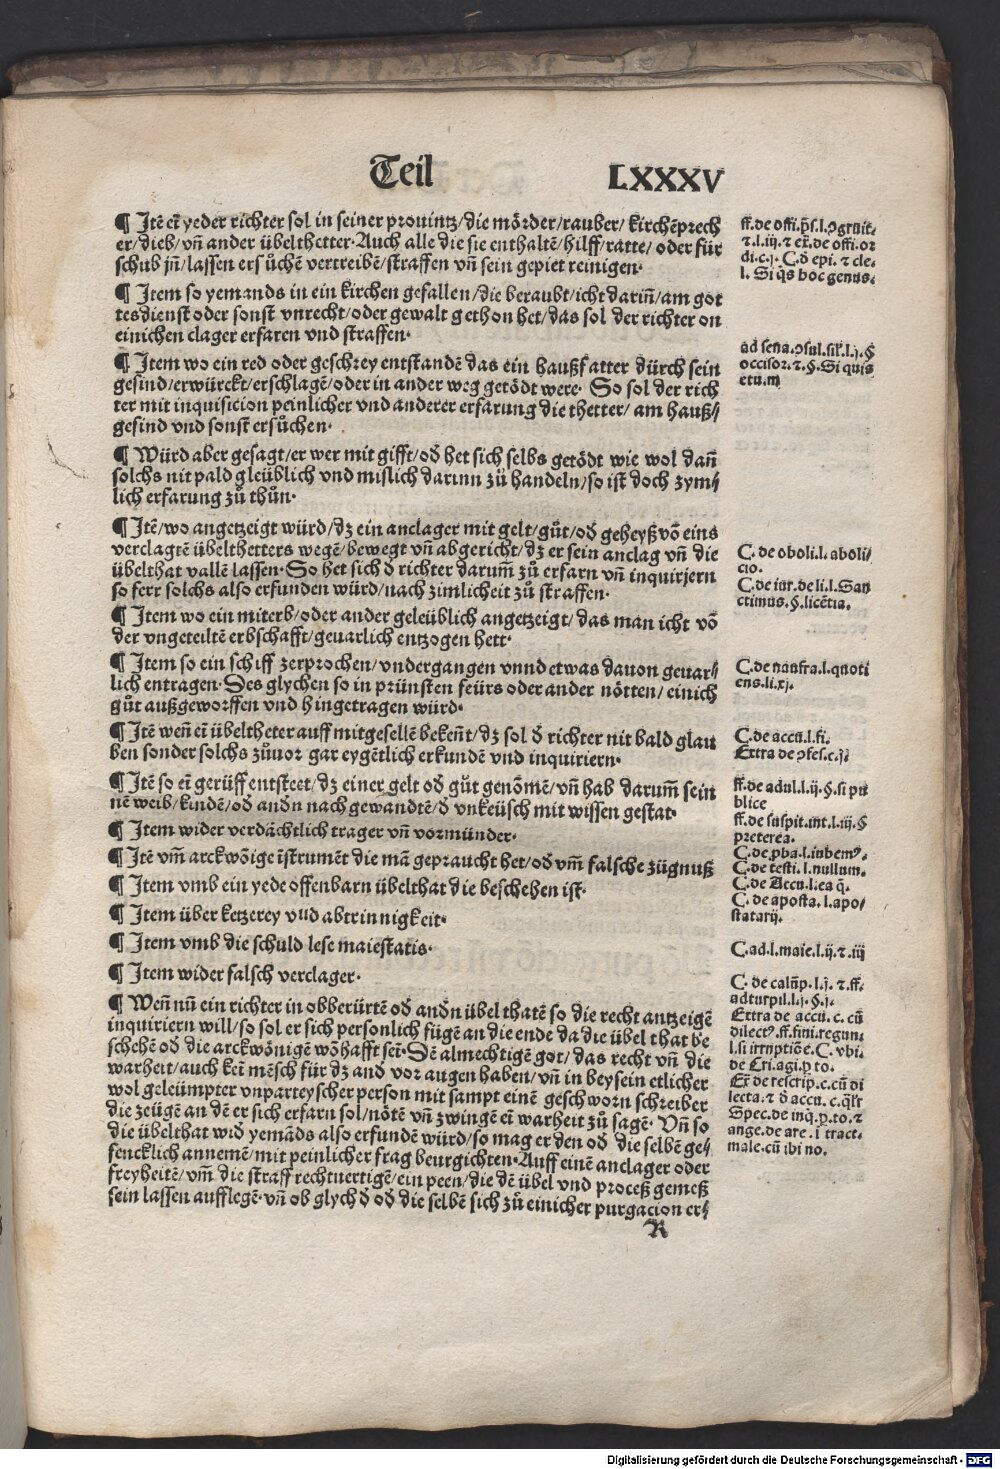 Teil LXXXV
¶ Jtē eī yeder richter sol in seiner prouintz/die mörder/rauber/kirchēprech
er/dieb/vn̄ ander übelthetter·Auch alle die sie enthaltē/hilff/ratte/oder für
schub jn̄/lassen ersůchen vertreibē/straffen vn̄ sein gepiet reinigen·
¶ Jtem so yemands in ein kirchen gefallen/die beraubt/icht darin̄/am got
tesdienst oder sonst vnrecht/oder gewalt gethon het/das sol der richter on
einichen clager erfaren vnd straffen·
¶ Jtem wo ein red oder geschrey entstandē das ein haußfatter dürch sein
gesind/erwürckt/erschlagē/oder in ander weg getödt were· So sol der rich
ter mit inquisicion peinlicher vnd anderer erfarung die thetter/am hauß/
gesind vnd sonst ersůchen·
¶ Würd aber gesagt/er wer mit gifft/od̄ het sich selbs getödt wie wol dan̄
solchs nit pald gleüblich vnd mislich darinn zů handeln/so ist doch zym/
lich erfarung zů thůn·
¶ Jtē/wo angetzeigt würd/dz ein anclager mit gelt/gůt/od̄ geheyß vō eins
verclagtē übelthetters wegē/bewegt vn̄ abgericht/dz er sein anclag vn̄ die
übelthat vallē lassen·So het sich d̄ richter darum̄ zů erfarn vn̄ inquirjern
so ferr solchs also erfunden würd/nach zimlicheit zů straffen·
¶ Jtem wo ein miterb/oder ander geleüblich angetzeigt/das man icht vō
der vngeteiltē erbschafft/geuarlich entzogen hett·
¶ Jtem so ein schiff zerprochen/vndergangen vnnd etwas dauon geuar/
lich entragen·Des glychen so in prünsten feürs oder ander nötten/einich
gůt außgeworffen vnd hingetragen würd·
¶ Jtē wen̄ eī übeltheter auff mitgesellē beken̄t/dz sol d̄ richter nit bald glau
ben sonder solchs zůuor gar eygētlich erkundē vnd inquiriern·
¶ Jtē so eī gerüff entsteet/dz einer gelt od̄ gůt genōmē/vn̄ hab darum̄ sein
nē weib/kindē/od̄ and̄n nachgewandtē/d̄ vnkeüsch mit wissen gestat·
¶ Jtem wider verdächtlich trager vn̄ vormünder·
¶ Jtē vm̄ arckwōige īstrumēt die mā gepraucht het/od̄ vm̄ falsche zügnuß
¶ Jtem vmb ein yede offenbarn übelthat die beschehen ist·
¶ Jtem über ketzerey vnd abtrinnigkeit·
¶ Jtem vmb die schuld lese maiestatis·
¶ Jtem wider falsch verclager·
¶ Wen̄ nū ein richter in obberürtē od̄ and̄n übelthatē so die recht antzeigē
inquiriern will/so sol er sich personlich fügē an die ende da die übelthat be
schehē od̄ die arckwönigē wōhafft seī·Dē almechtigē got/das recht vn̄ die
warheit/auch keī mēsch für dz and vor augen haben/vn̄ in beysein etlicher
wol geleümpter vnparteyscher person mit sampt einē geschworn schreiber
die zeügē an dē er sich erfarn sol/nötē vn̄ zwingē eī warheit zů sagē· Vn̄ so
die übelthat wid̄ yemāds also erfundē würd/so mag er den od̄ die selbē ge/
fencklich annemē/mit peinlicher frag beurgichten·Auff einē anclager oder
freyheitē/vm̄ die straff rechtuertigē/ein peen/die dē übel vnd proceß gemeß
sein lassen aufflegē·vn̄ ob glych d̄ od̄ die selbē sich zů einicher purgacion er/
R
ff.de offi.p̄s.l.ↄgruit.
⁊.l.iij.⁊ ex̄.de offi.or
di.c.j. C.d̄ epi. ⁊ cle.
l. Si q̄s hoc genus.
ad sena.ↄsul.sil'.l.j.§
occisor.⁊.§.Si quis
etu.m
C. de oboli.l. aboli/
cio.
C.de iur.deli.l.San
ctimus.§.licētia.
C.de naufra.l.quoti
ens.li.xj.
C.de accu.l.fi.
Extra de ↄfes.c.j.
ff.de adul.l.ij.§.si pu
blice
ff.de suspit.int.l.iij.§
preterea.
C.de ꝓba.l.iubemꝰ.
C.de testi.l.nullum.
C.de Accu.l.ea q̄.
C.de aposta.l.apo/
statarū.
C.ad.l.maie.l.ij.⁊.iij
C. de calūp.l.j. ⁊.ff.
ad turpil.l.j.§.j.
Extra de accu.c. cū
dilectꝰ.ff.fini.regun.
l.si irruptiōe.C.vbi.
de Cri.agi.ꝑ to.
Ex̄ de rescrip.c.cū di
lecta.⁊ d̄ accu.c.q̄lr̄
Spec.de inq̄.ꝑ.to.⁊
ange.de are.ī tract.
male.cū ibi no.
Digitalisierung gefördert durch die Deutsche Forschungsgemeinschaft - DFG